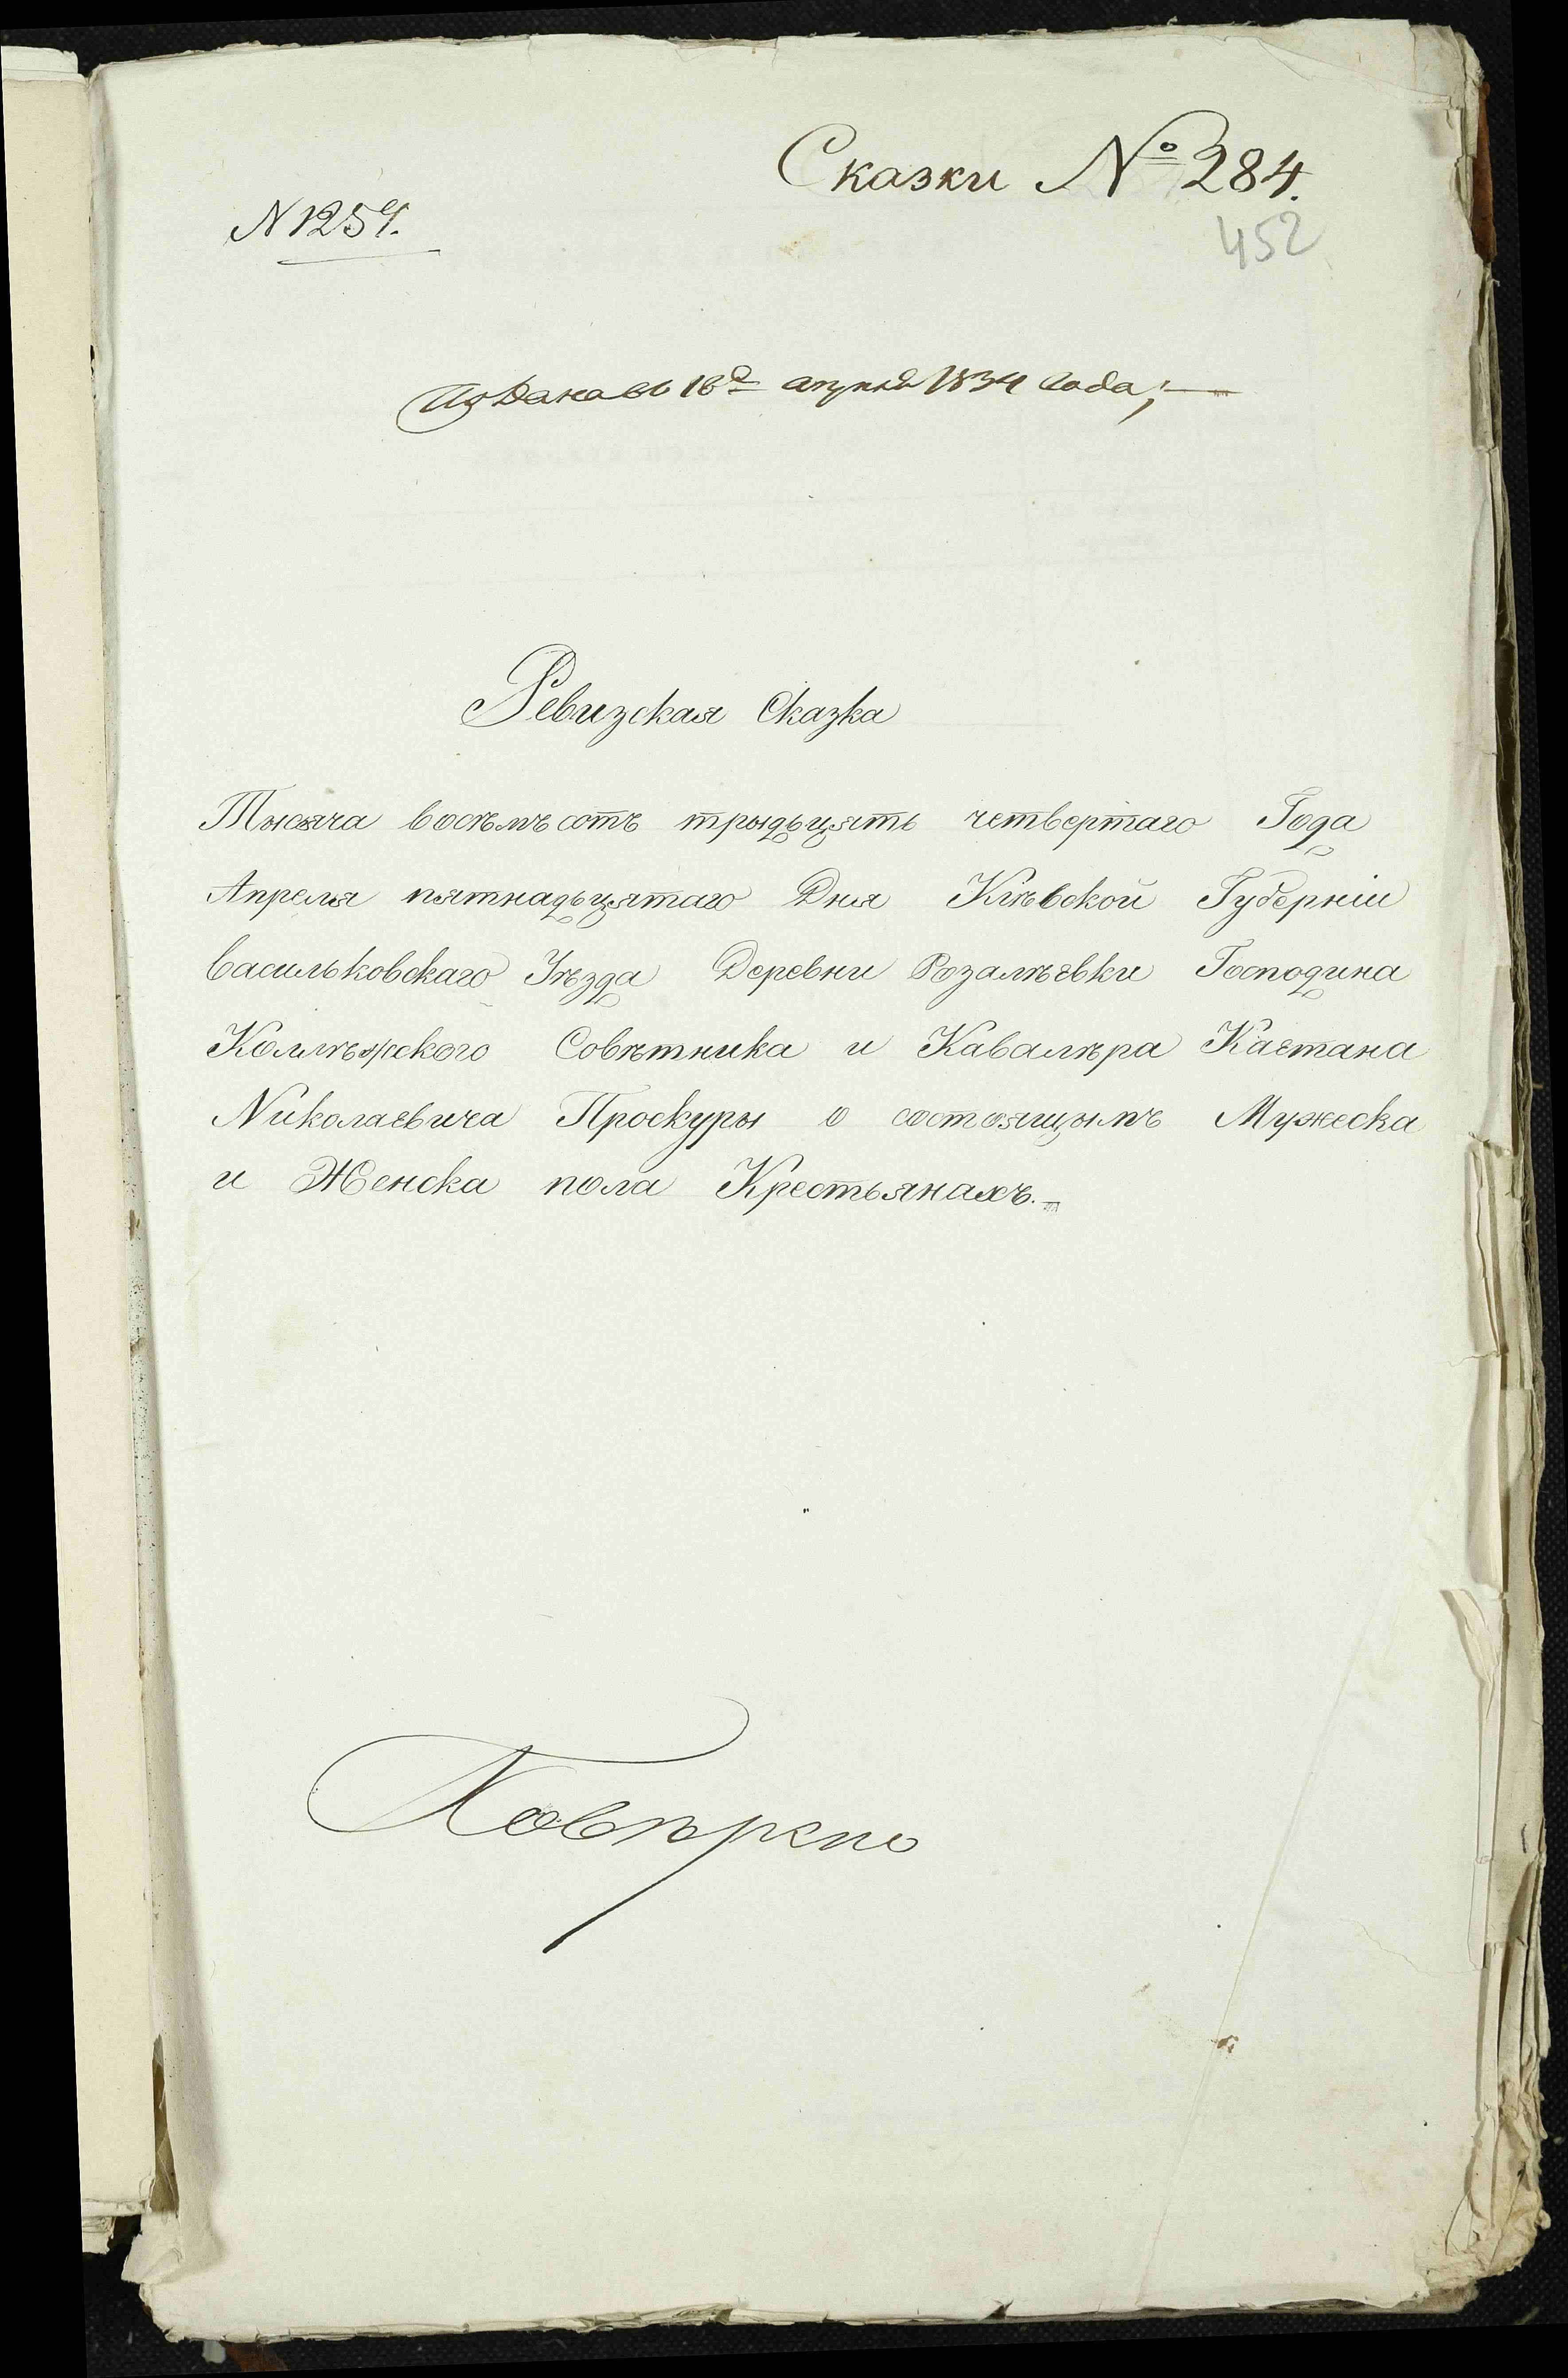 Сказки № 284.
N 1257.
452
Подана въ 16е апреля 1834 года;—
Ревизская Сказка
Тысяча восѣмъ сотъ трыдьцять четвертаго Года
Апреля пятнадьцятаго Дня Кіѣвской Губерніи
Васильковскаго Уѣзда Деревни Розалѣевки Господина
Коллѣжского Совѣтника и Кавалѣра Каетана
Николаевича Проскуры о состоящымъ Мужеска
и Женска пола Крестьянахъ.=
Повѣрено